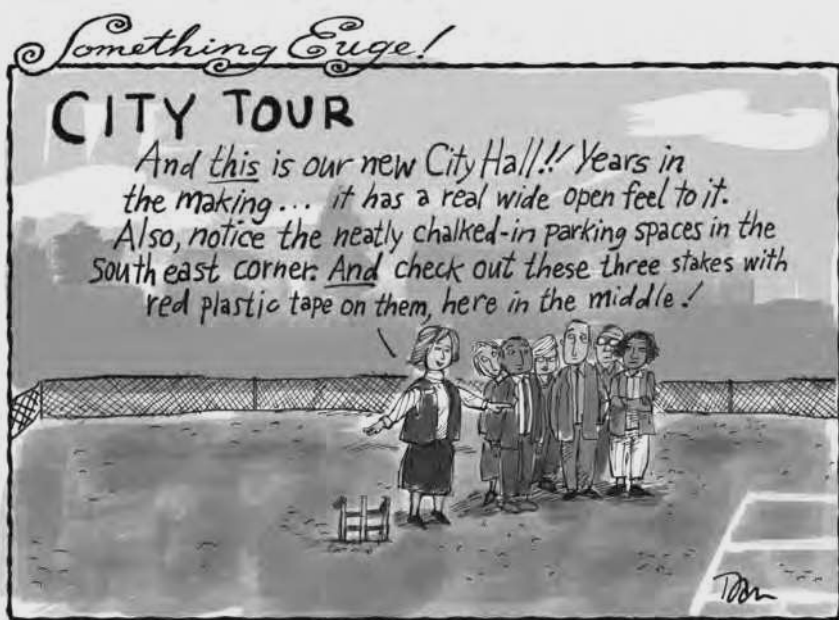 Something Euge!
CITY TOUR
And this is our new City Hall!! Years in
the making... it has a real wide open feel to it.
Also, notice the neatly chalked-in parking spaces in the
south east corner. And check out these three stakes with
red plastic tape on them, here in the middle!